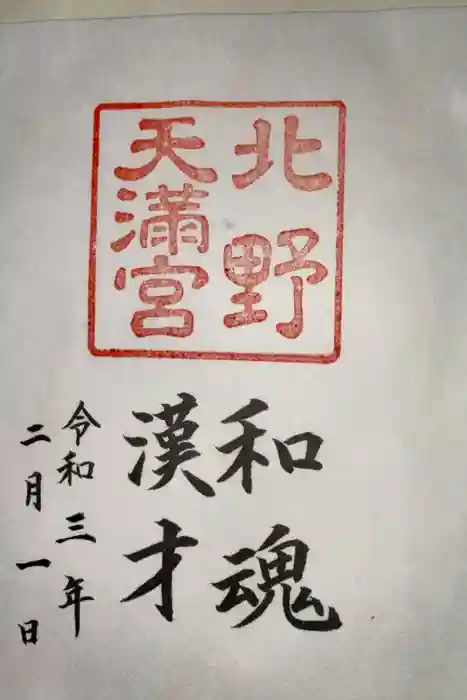 北野
天満宮
和魂
漢才
令和三年
二月一日